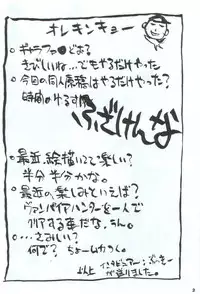 オレキンキョー
○ギャラファ●どお?
きびしいね…でもやるだけやった
○今回の同人原稿はやるだけやった?
時間のゆるす
ふざけんな
○最近、絵描いてて楽しい?
半分半分かな。
○最近の楽しみといえば?
ヴァンパイアハンターを一人で
クリアする事だな、うん。
○…さみしい?
何で?ちょームカつく。
以上 インタビュアー:
が送りました。